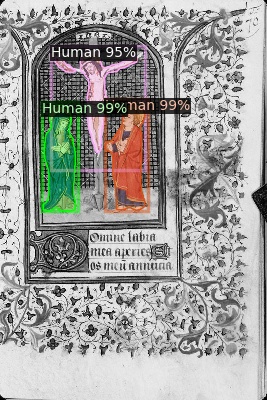 Human 95%
Human 99%
man 99%
Domine labia
mea aperies Et
os meū annuncia